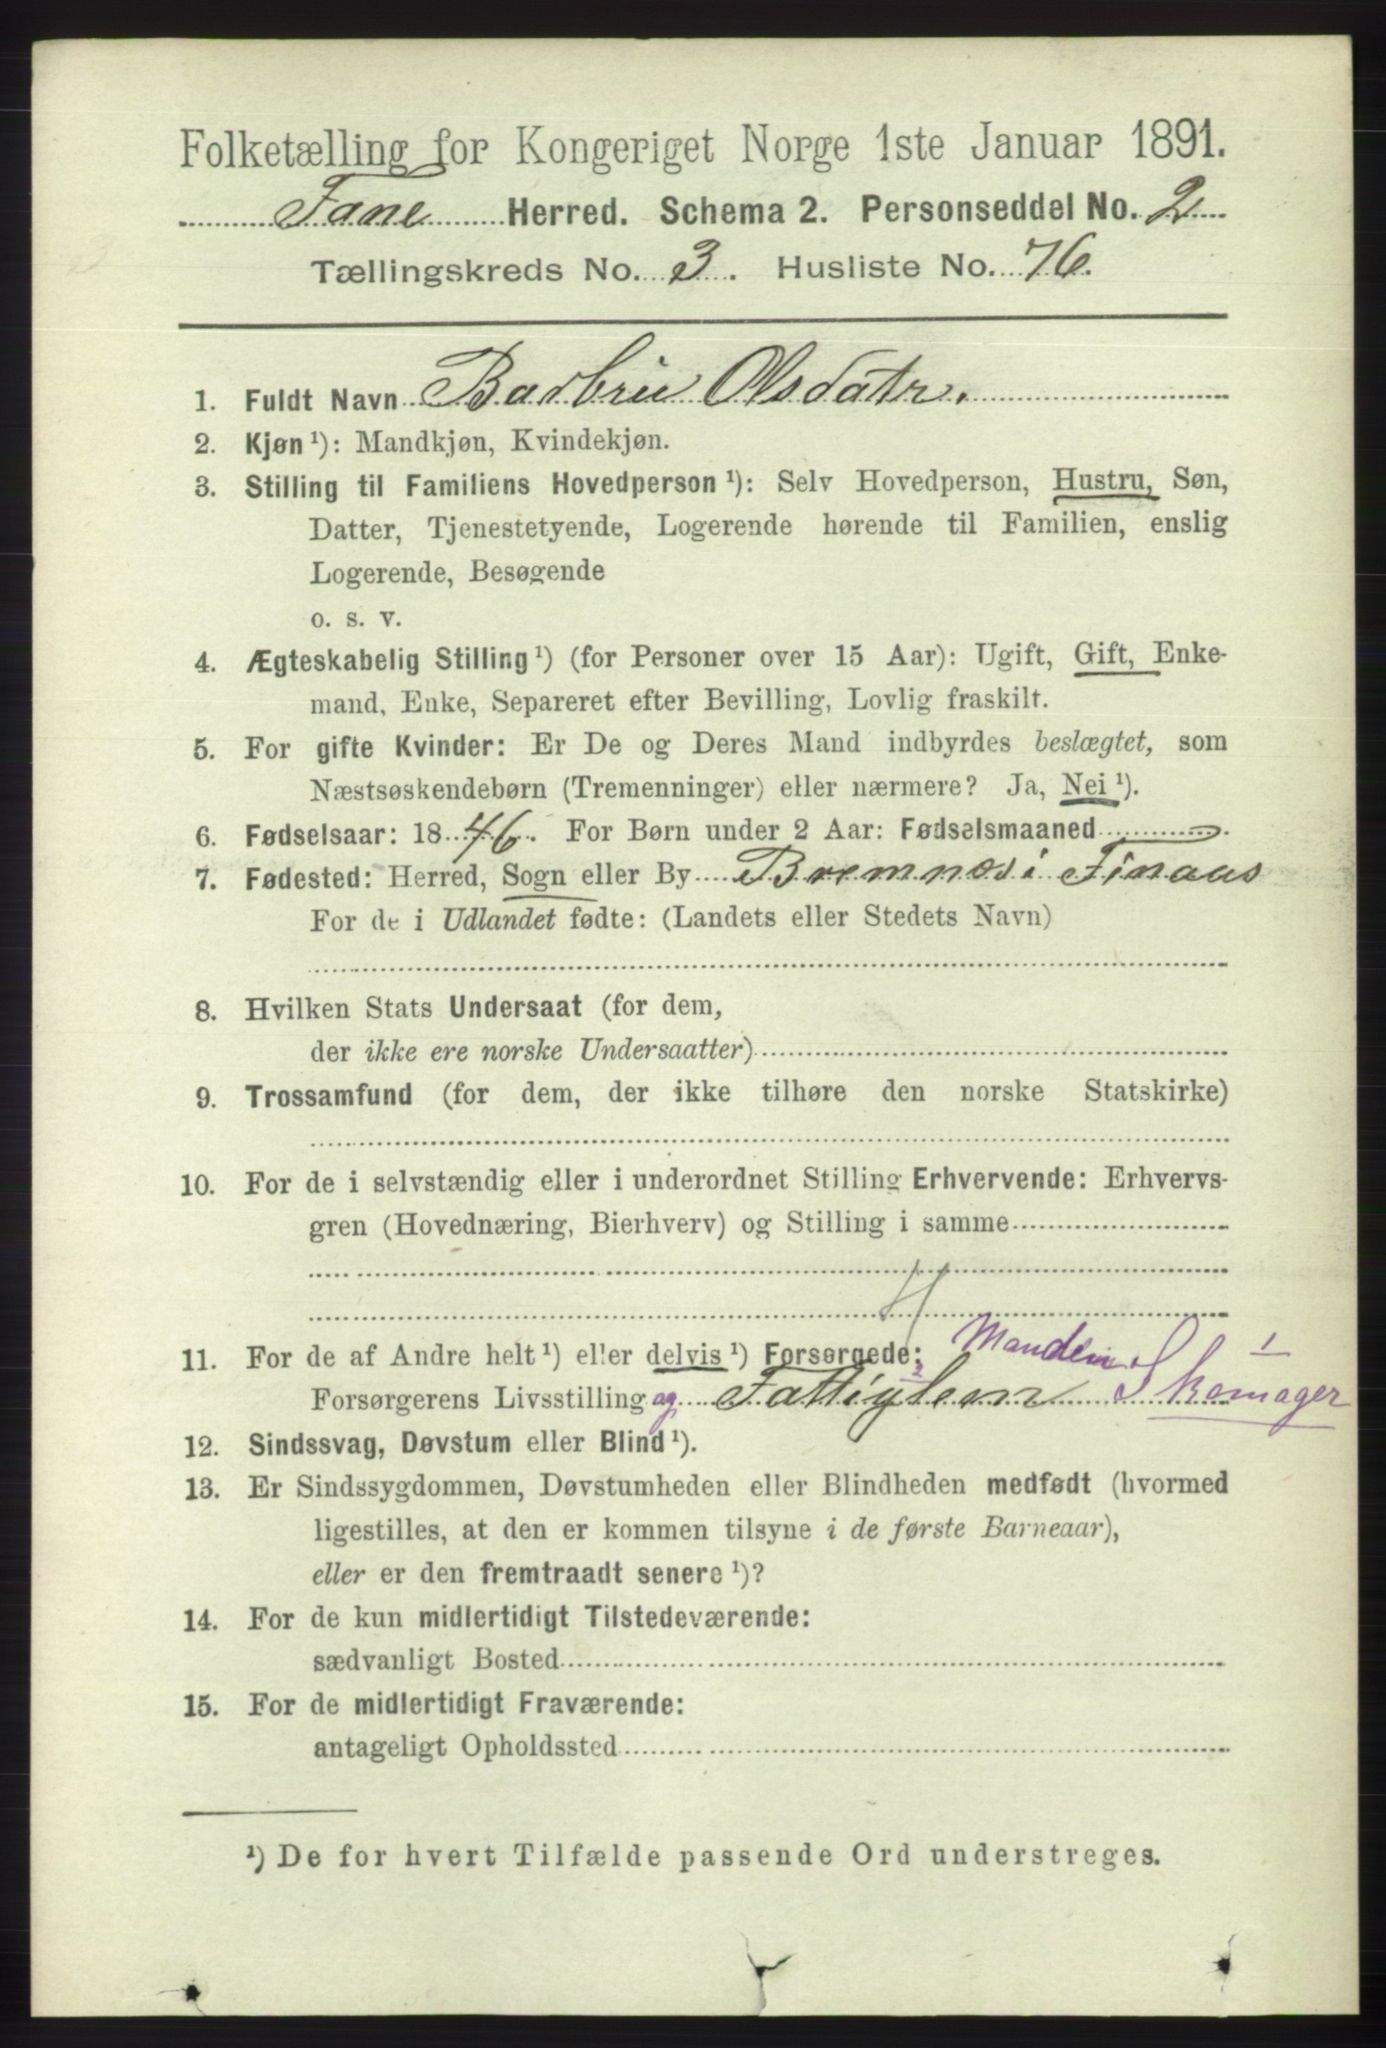 Folketælling for Kongeriget Norge 1ste Januar 1891.
Fane Herred. Schema 2. Personseddel No. 2
Tællingskreds No. 3. Husliste No. 76.
1. Fuldt Navn Barbru Olsdatr.
2. Kjøn ¹): Mandkjøn, Kvindekjøn.
3. Stilling til Familiens Hovedperson ¹): Selv Hovedperson, Hustru, Søn,
Datter, Tjenestetyende, Logerende hørende til Familien, enslig
Logerende, Besøgende
o. s. v.
4. Ægteskabelig Stilling ¹) (for Personer over 15 Aar): Ugift, Gift, Enke-
mand, Enke, Separeret efter Bevilling, Lovlig fraskilt.
5. For gifte Kvinder: Er De og Deres Mand indbyrdes beslægtet, som
Næstsøskendebørn (Tremenninger) eller nærmere? Ja, Nei ¹).
6. Fødselsaar: 1846. For Børn under 2 Aar: Fødselsmaaned
7. Fødested: Herred, Sogn eller By Bremnæs i Finaas
For de i Udlandet fødte: (Landets eller Stedets Navn)
8. Hvilken Stats Undersaat (for dem,
der ikke ere norske Undersaatter)
9. Trossamfund (for dem, der ikke tilhøre den norske Statskirke)
10. For de i selvstændig eller i underordnet Stilling Erhvervende: Erhvervs-
gren (Hovednæring, Bierhverv) og Stilling i samme
11. For de af Andre helt ¹) eller delvis ¹) Forsørgede: Manden 1
Forsørgerens Livsstilling og 2 Fattiglem Skomager
12. Sindssvag, Døvstum eller Blind ¹).
13. Er Sindssygdommen, Døvstumheden eller Blindheden medfødt (hvormed
ligestilles, at den er kommen tilsyne i de første Barneaar),
eller er den fremtraadt senere ¹)?
14. For de kun midlertidigt Tilstedeværende:
sædvanligt Bosted
15. For de midlertidigt Fraværende:
antageligt Opholdssted
¹) De for hvert Tilfælde passende Ord understreges.